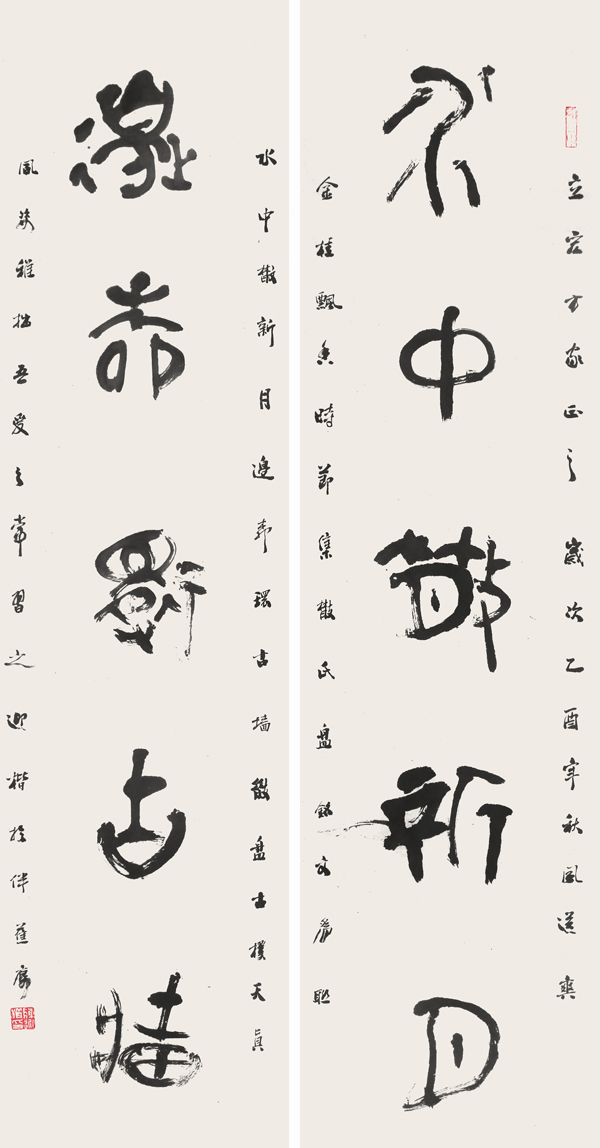 立宏方家正之 歲次乙酉年秋風送爽
水中散新月
金桂飄香時節集散氏盘銘文為聯
水中散新月邊環古墙 散盘古樸天真
邊環古墙
風雅拙吾愛之常習之 迎楷於伴蕉廬